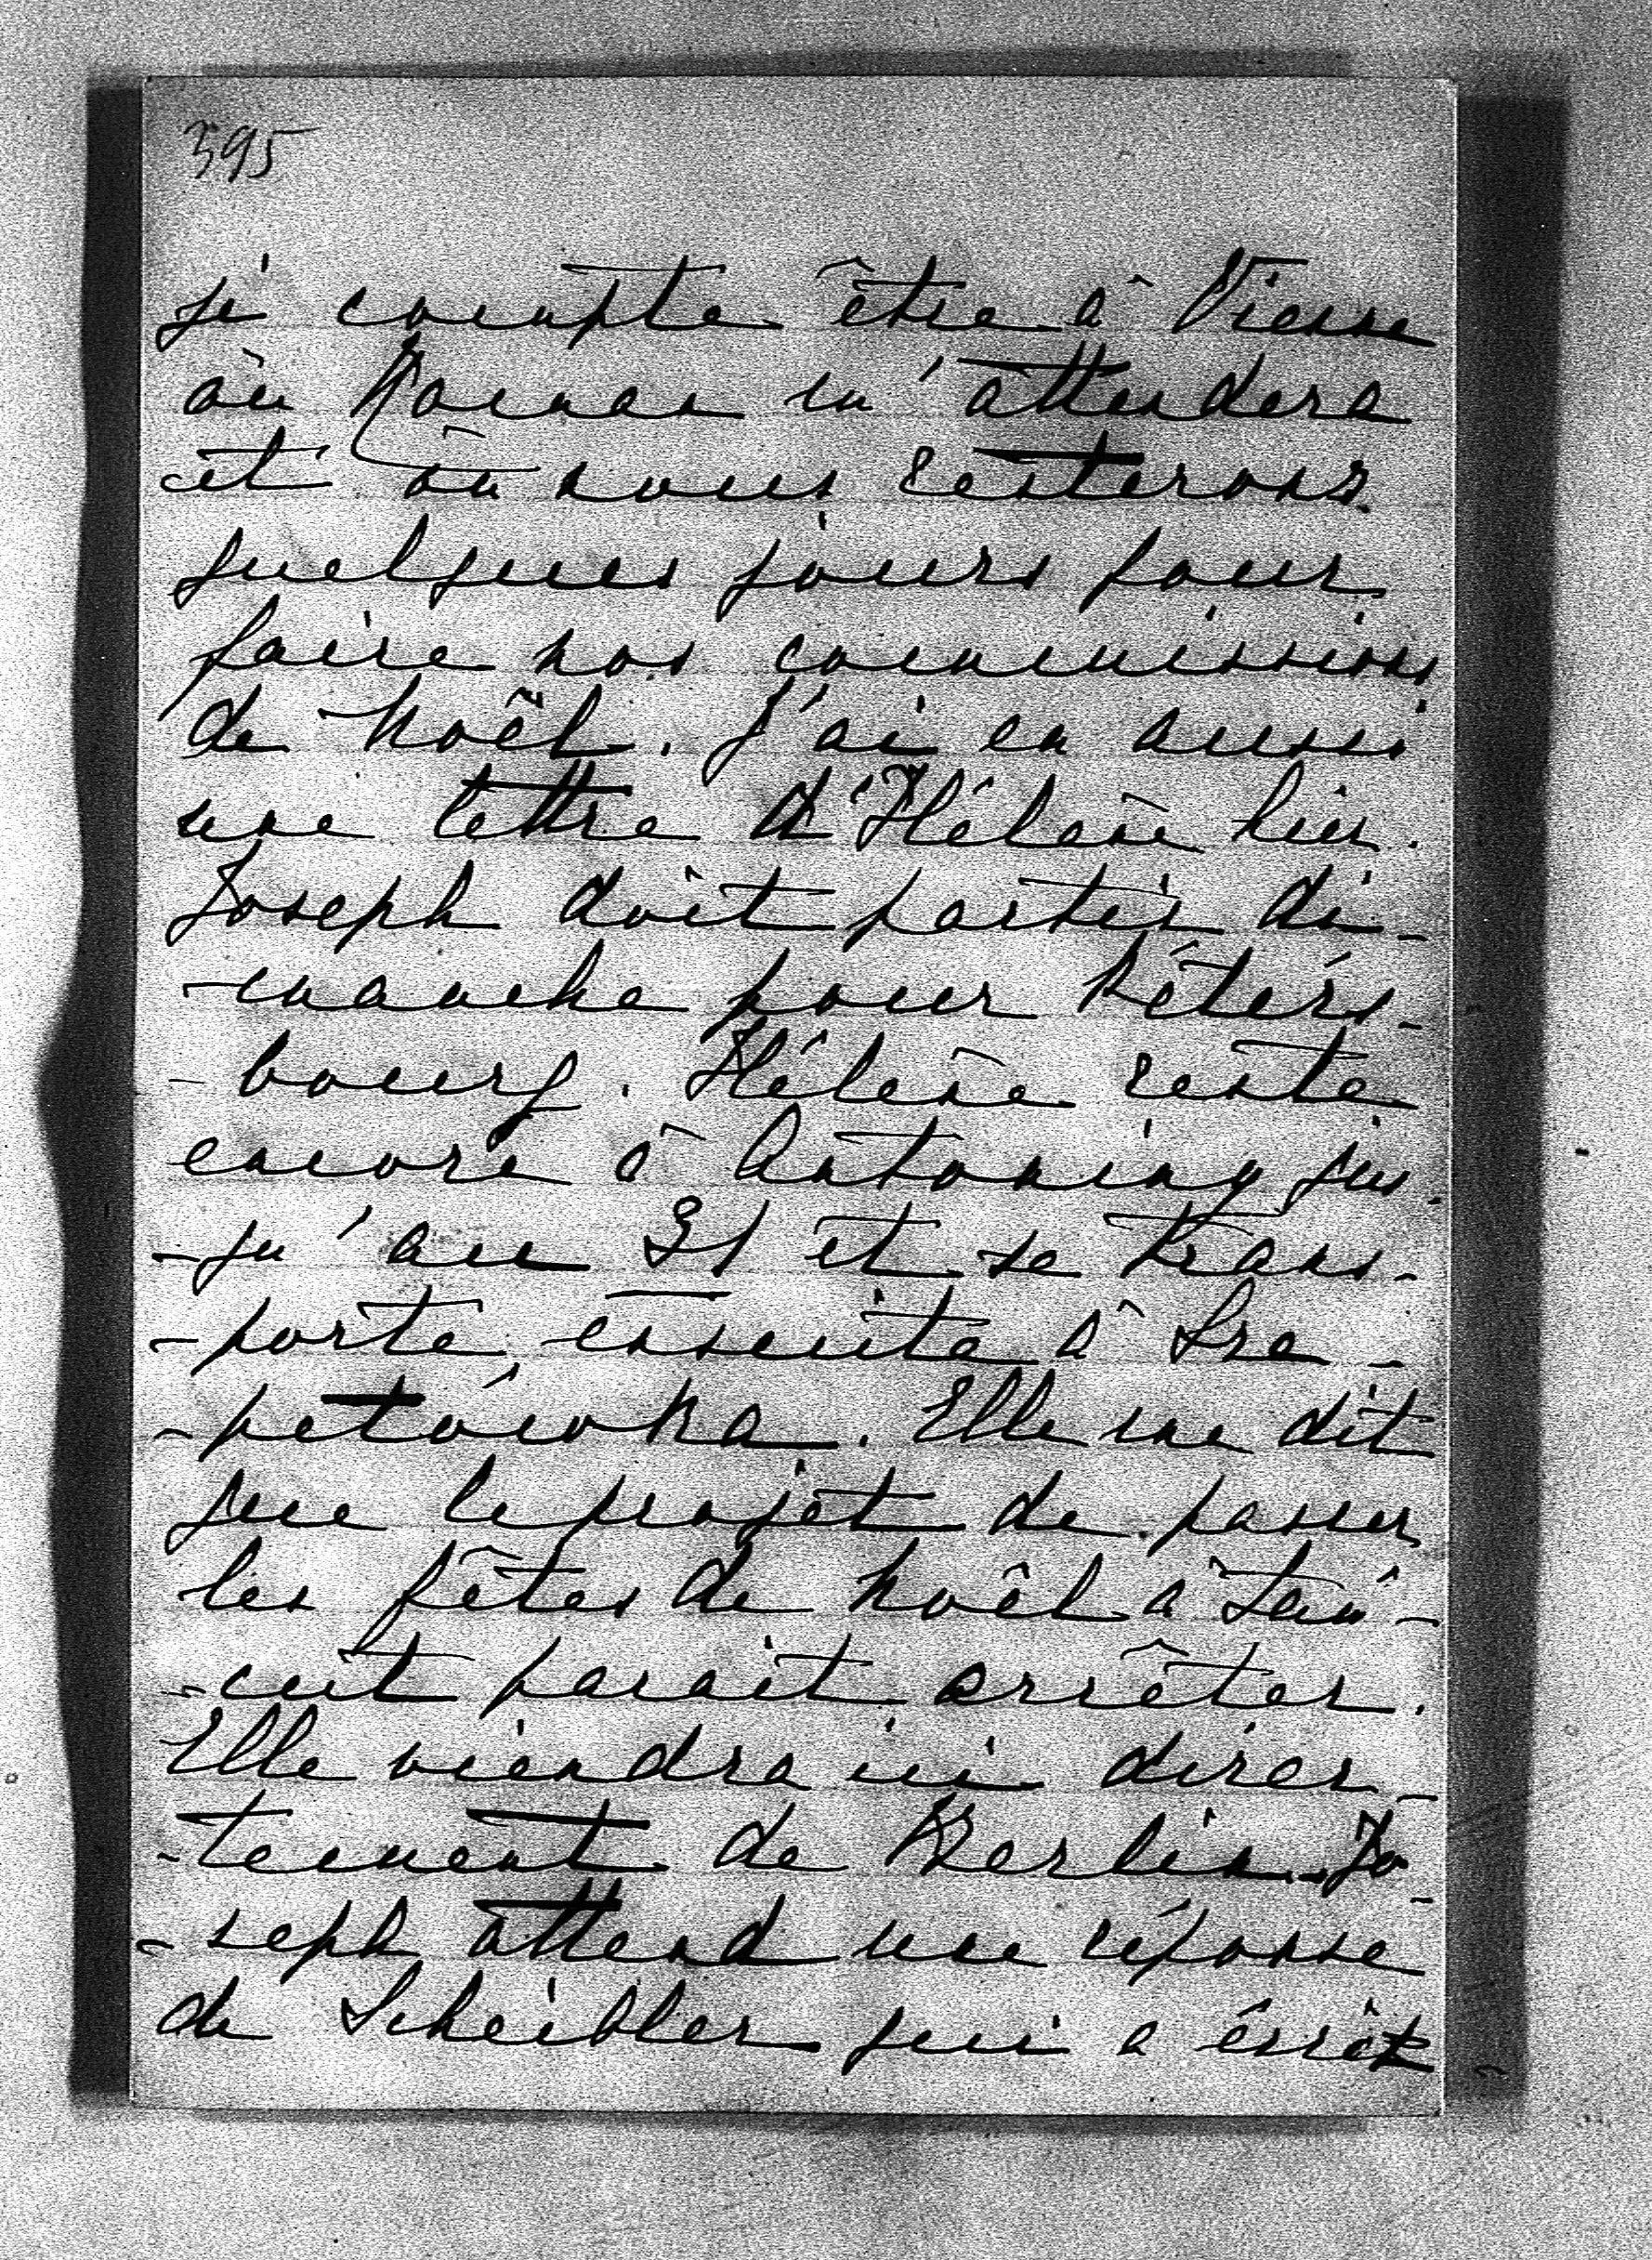 395
je compte être à Vienne
où Roman m'attendera
et où nous resterons
quelques jours pour
faire nos commissions
de Noël. J'ai eu aussi
une lettre d'Hélène hier.
Joseph doit partir di-
-manche pour Péters-
-bourg. Hélène reste
encore à Antoniny jus-
-qu'au 21 et se trans-
-porte ensuite à Sze-
-petówka. Elle me dit
que le projet de passer
les fêtes de Noël à Łań-
-cut parait arrêter.
Elle viendra ici direc-
-tement de Berlin. Jo-
-seph attend une réponse
de Scheibler qui a écrit